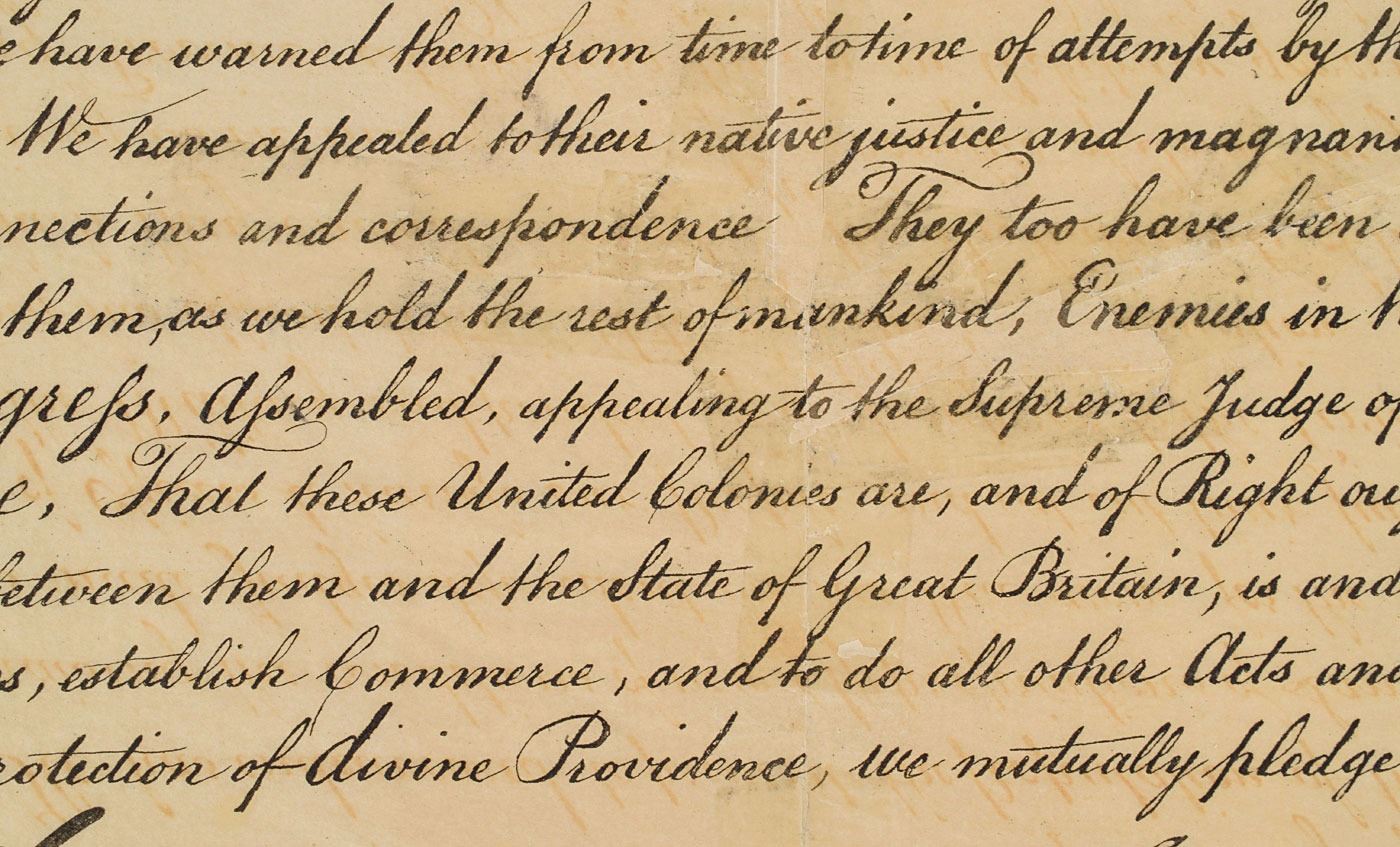 e have warned them from time to time of attempts by th
We have appealed to their native justice and magnani
nections and correspondence They too have been
them, as we hold the rest of mankind, Enemies in
greſs, Aſsembled, appealing to the Supreme Judge of
e, That these United Colonies are, and of Right ou
between them and the State of Great Britain, is and
s, establish Commerce, and to do all other Acts and
rotection of divine Providence, we mutually pledge